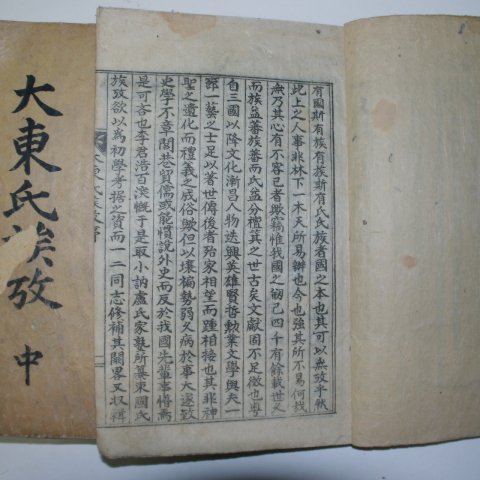 大東氏族攷
中
有國斯有族有族斯有氏氏族者國之本也其可以無攷乎然
此上之人事非林下一木天所易辦也今也強其所不易何哉
無乃其心有不容已者歟竊惟我國之刱己四千有餘載世久
而族益蕃族蕃而氏益分檀箕之世古矣文獻固不足徵也粤
自三國以降文化漸昌人物迭興英雄賢哲勳業文學與夫一
節一藝之士足以著世傳後者殆家相望而踵相接也其非神
聖之遺化而禮義之成俗歟但以壤褊勢弱久病於事大遂致
史學不章閭巷留儒或能慣說外史而反於我國先輩事愽焉
是可吝也李君浩百溁慨于是取小訥盧氏家塾所纂東國氏
族攷欲以爲初學考據之資而一二同志修補其闕畧又収諱
大東氏族攷序